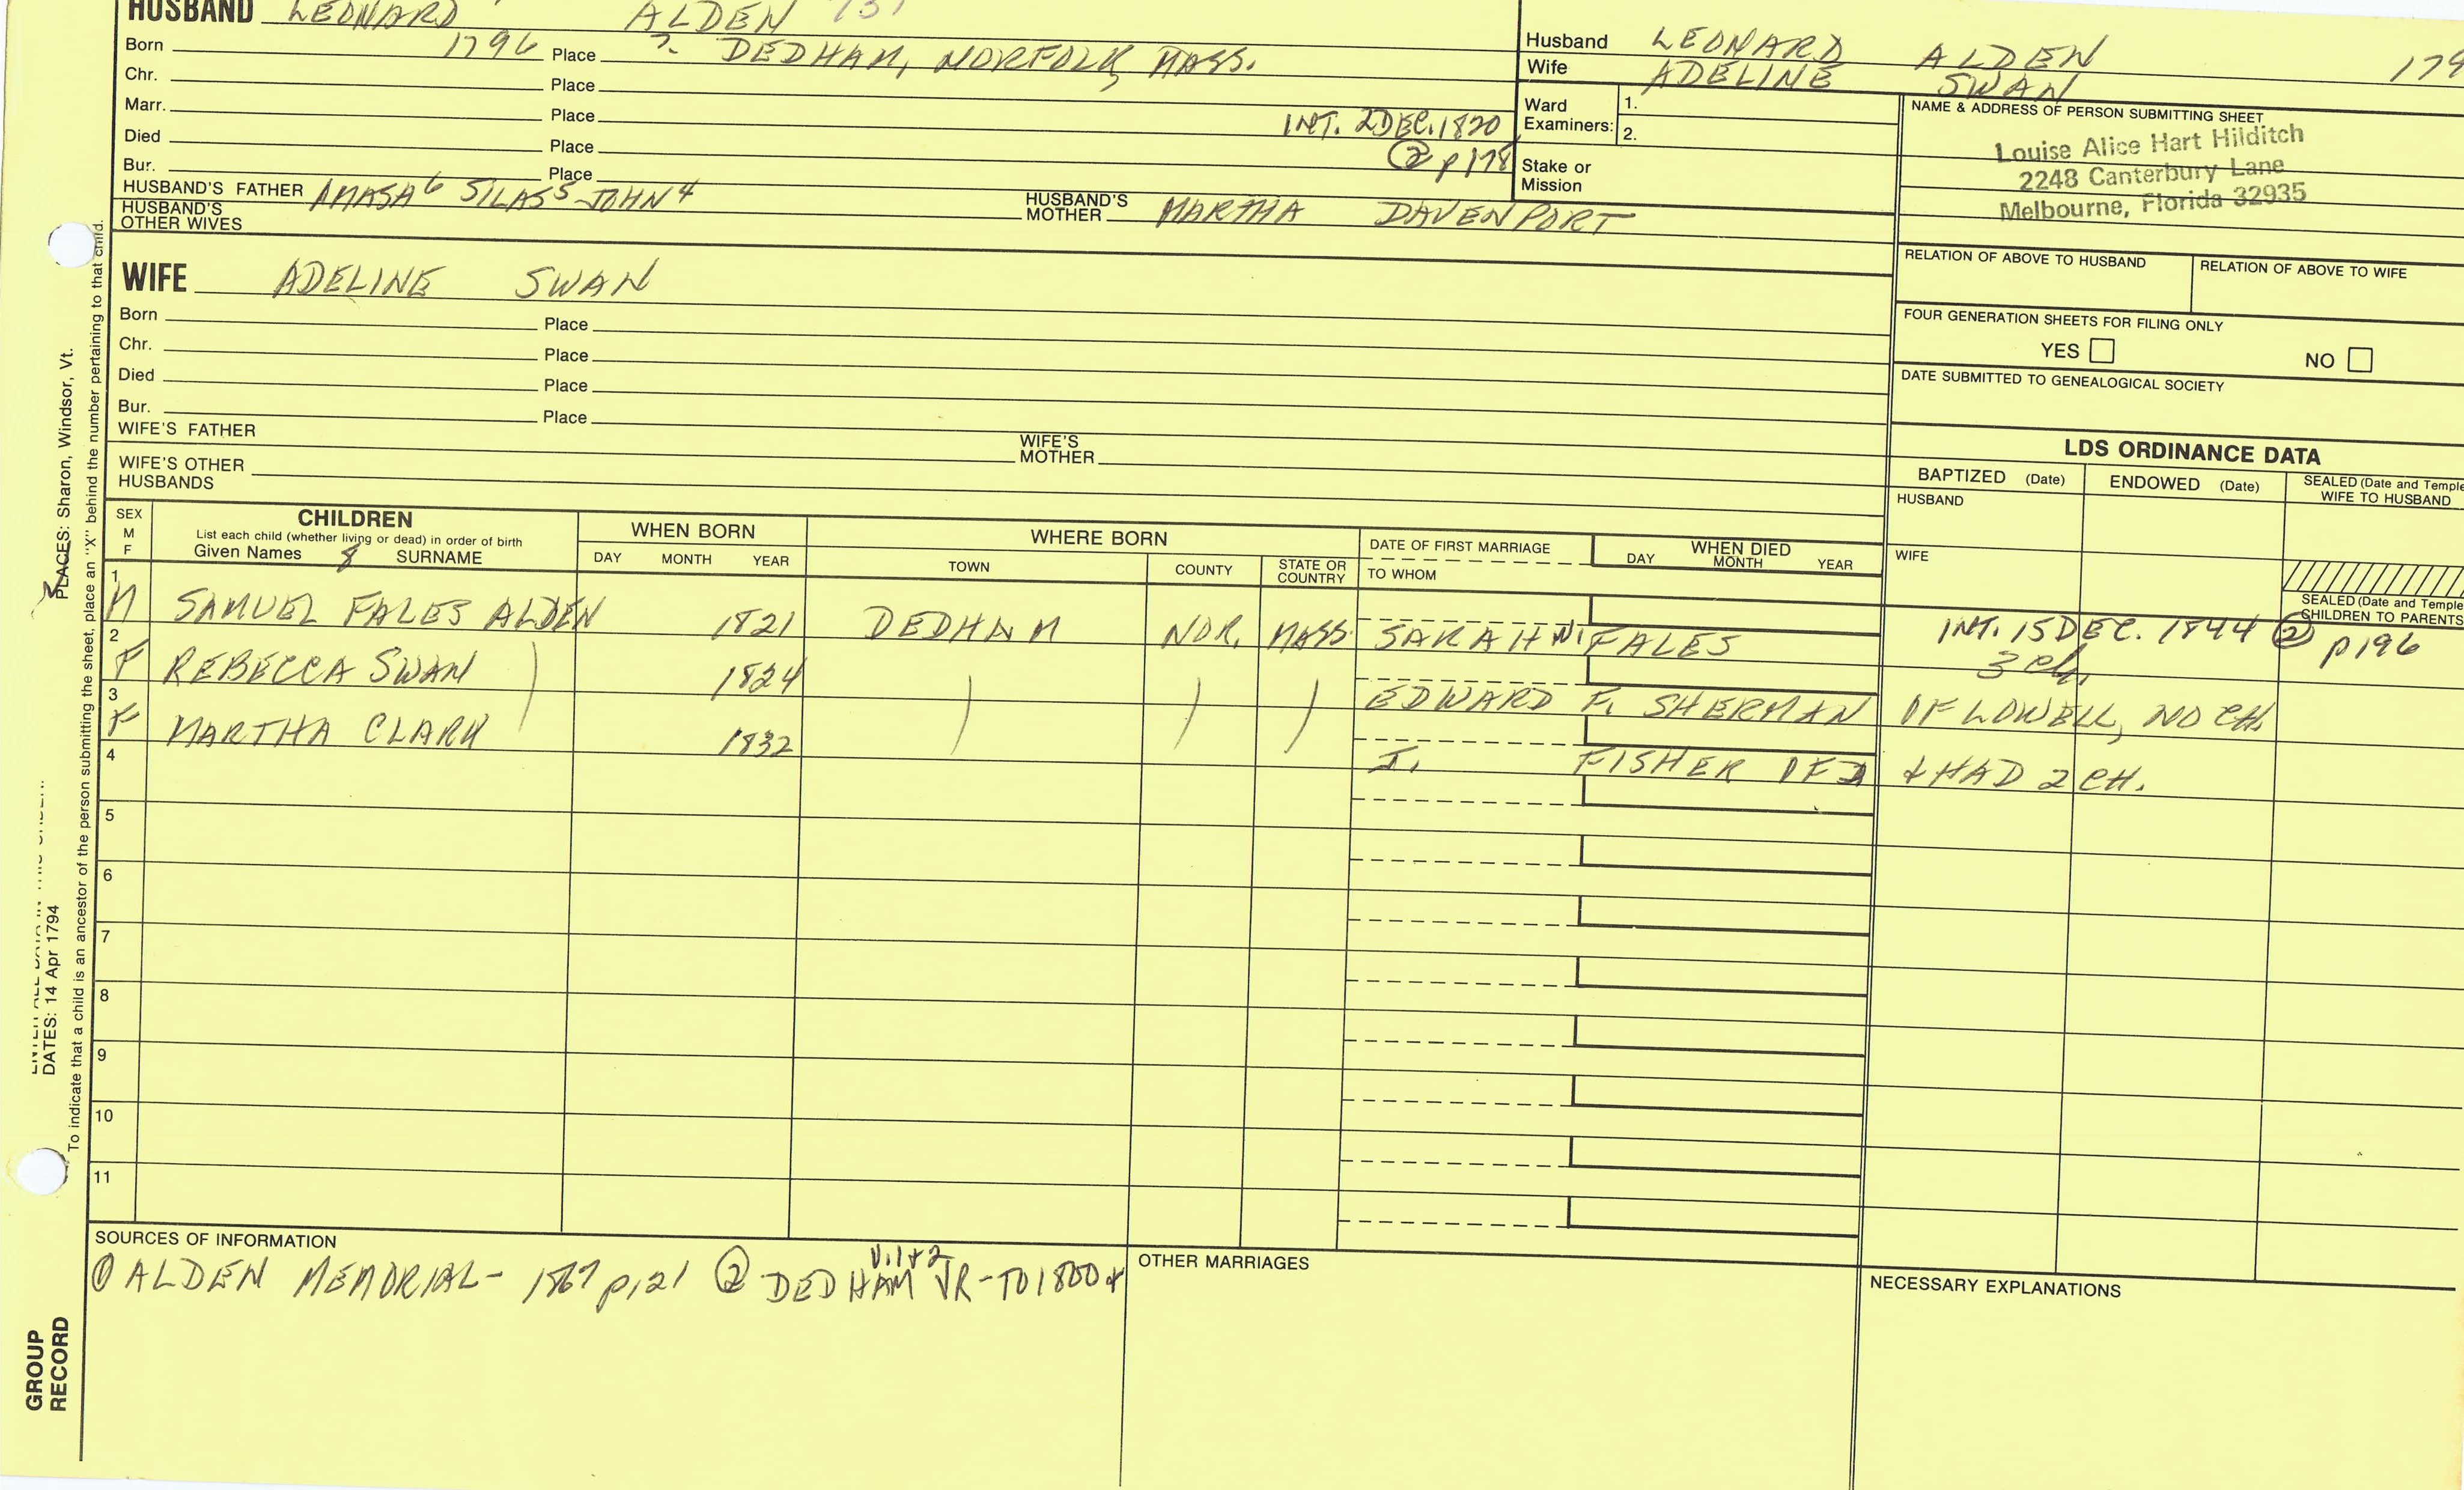 HUSBAND LEONARD ALDEN 731
Born 1796 Place ? DEDHAM, NORFOLK, MASS.
Chr. Place
Marr. Place INT. 2 DEC. 1820
Died Place ② p178
Bur. Place
HUSBAND'S FATHER AMASA6 SILAS5 JOHN4 HUSBAND'S MOTHER MARTHA DAVENPORT
HUSBAND'S OTHER WIVES
Husband LEONARD ALDEN 179
Wife ADELINE SWAN
Ward Examiners: 1.
2.
Stake or Mission
NAME & ADDRESS OF PERSON SUBMITTING SHEET
Louise Alice Hart Hilditch
2248 Canterbury Lane
Melbourne, Florida 32935
RELATION OF ABOVE TO HUSBAND RELATION OF ABOVE TO WIFE
FOUR GENERATION SHEETS FOR FILING ONLY
YES NO
DATE SUBMITTED TO GENEALOGICAL SOCIETY
WIFE ADELINE SWAN
Born Place
Chr. Place
Died Place
Bur. Place
WIFE'S FATHER WIFE'S MOTHER
WIFE'S OTHER HUSBANDS
LDS ORDINANCE DATA
BAPTIZED (Date) ENDOWED (Date) SEALED (Date and Temple
WIFE TO HUSBAND
HUSBAND
WIFE
SEALED (Date and Temple
CHILDREN TO PARENTS
SEX
M
F
CHILDREN
List each child (whether living or dead) in order of birth
Given Names & SURNAME
WHEN BORN
DAY MONTH YEAR
WHERE BORN
TOWN COUNTY STATE OR COUNTRY
DATE OF FIRST MARRIAGE
TO WHOM
WHEN DIED
DAY MONTH YEAR
1 M SAMUEL FALES ALDEN 1821 DEDHAM NOR. MASS. SARAH W. FALES INT. 15 DEC. 1844 ② p196
3 ch.
2 F REBECCA SWAN ) 1824 ) ) ) EDWARD F. SHERMAN OF LOWELL, NO CH.
3 F MARTHA CLARK 1832 J. FISHER OF D & HAD 2 CH.
4
5
6
7
8
9
10
11
SOURCES OF INFORMATION
① ALDEN MEMORIAL - 1867 p121 ② DEDHAM VR - TO 1800+
V. 1+2
OTHER MARRIAGES
NECESSARY EXPLANATIONS
PLACES: Sharon, Windsor, Vt.
DATES: 14 Apr 1794
To indicate that a child is an ancestor of the person submitting the sheet, place an "X" behind the number pertaining to that child.
GROUP
RECORD